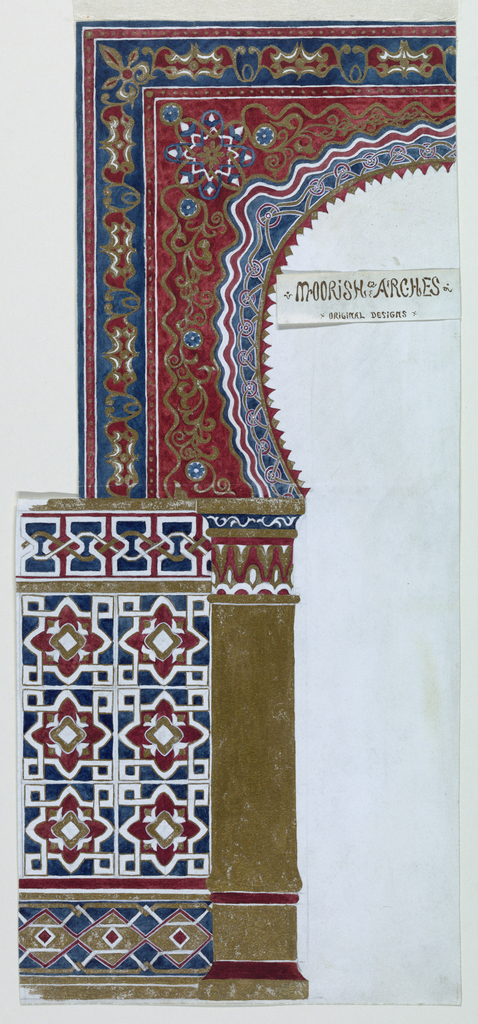 MOORISH ARCHES
ORIGINAL DESIGNS